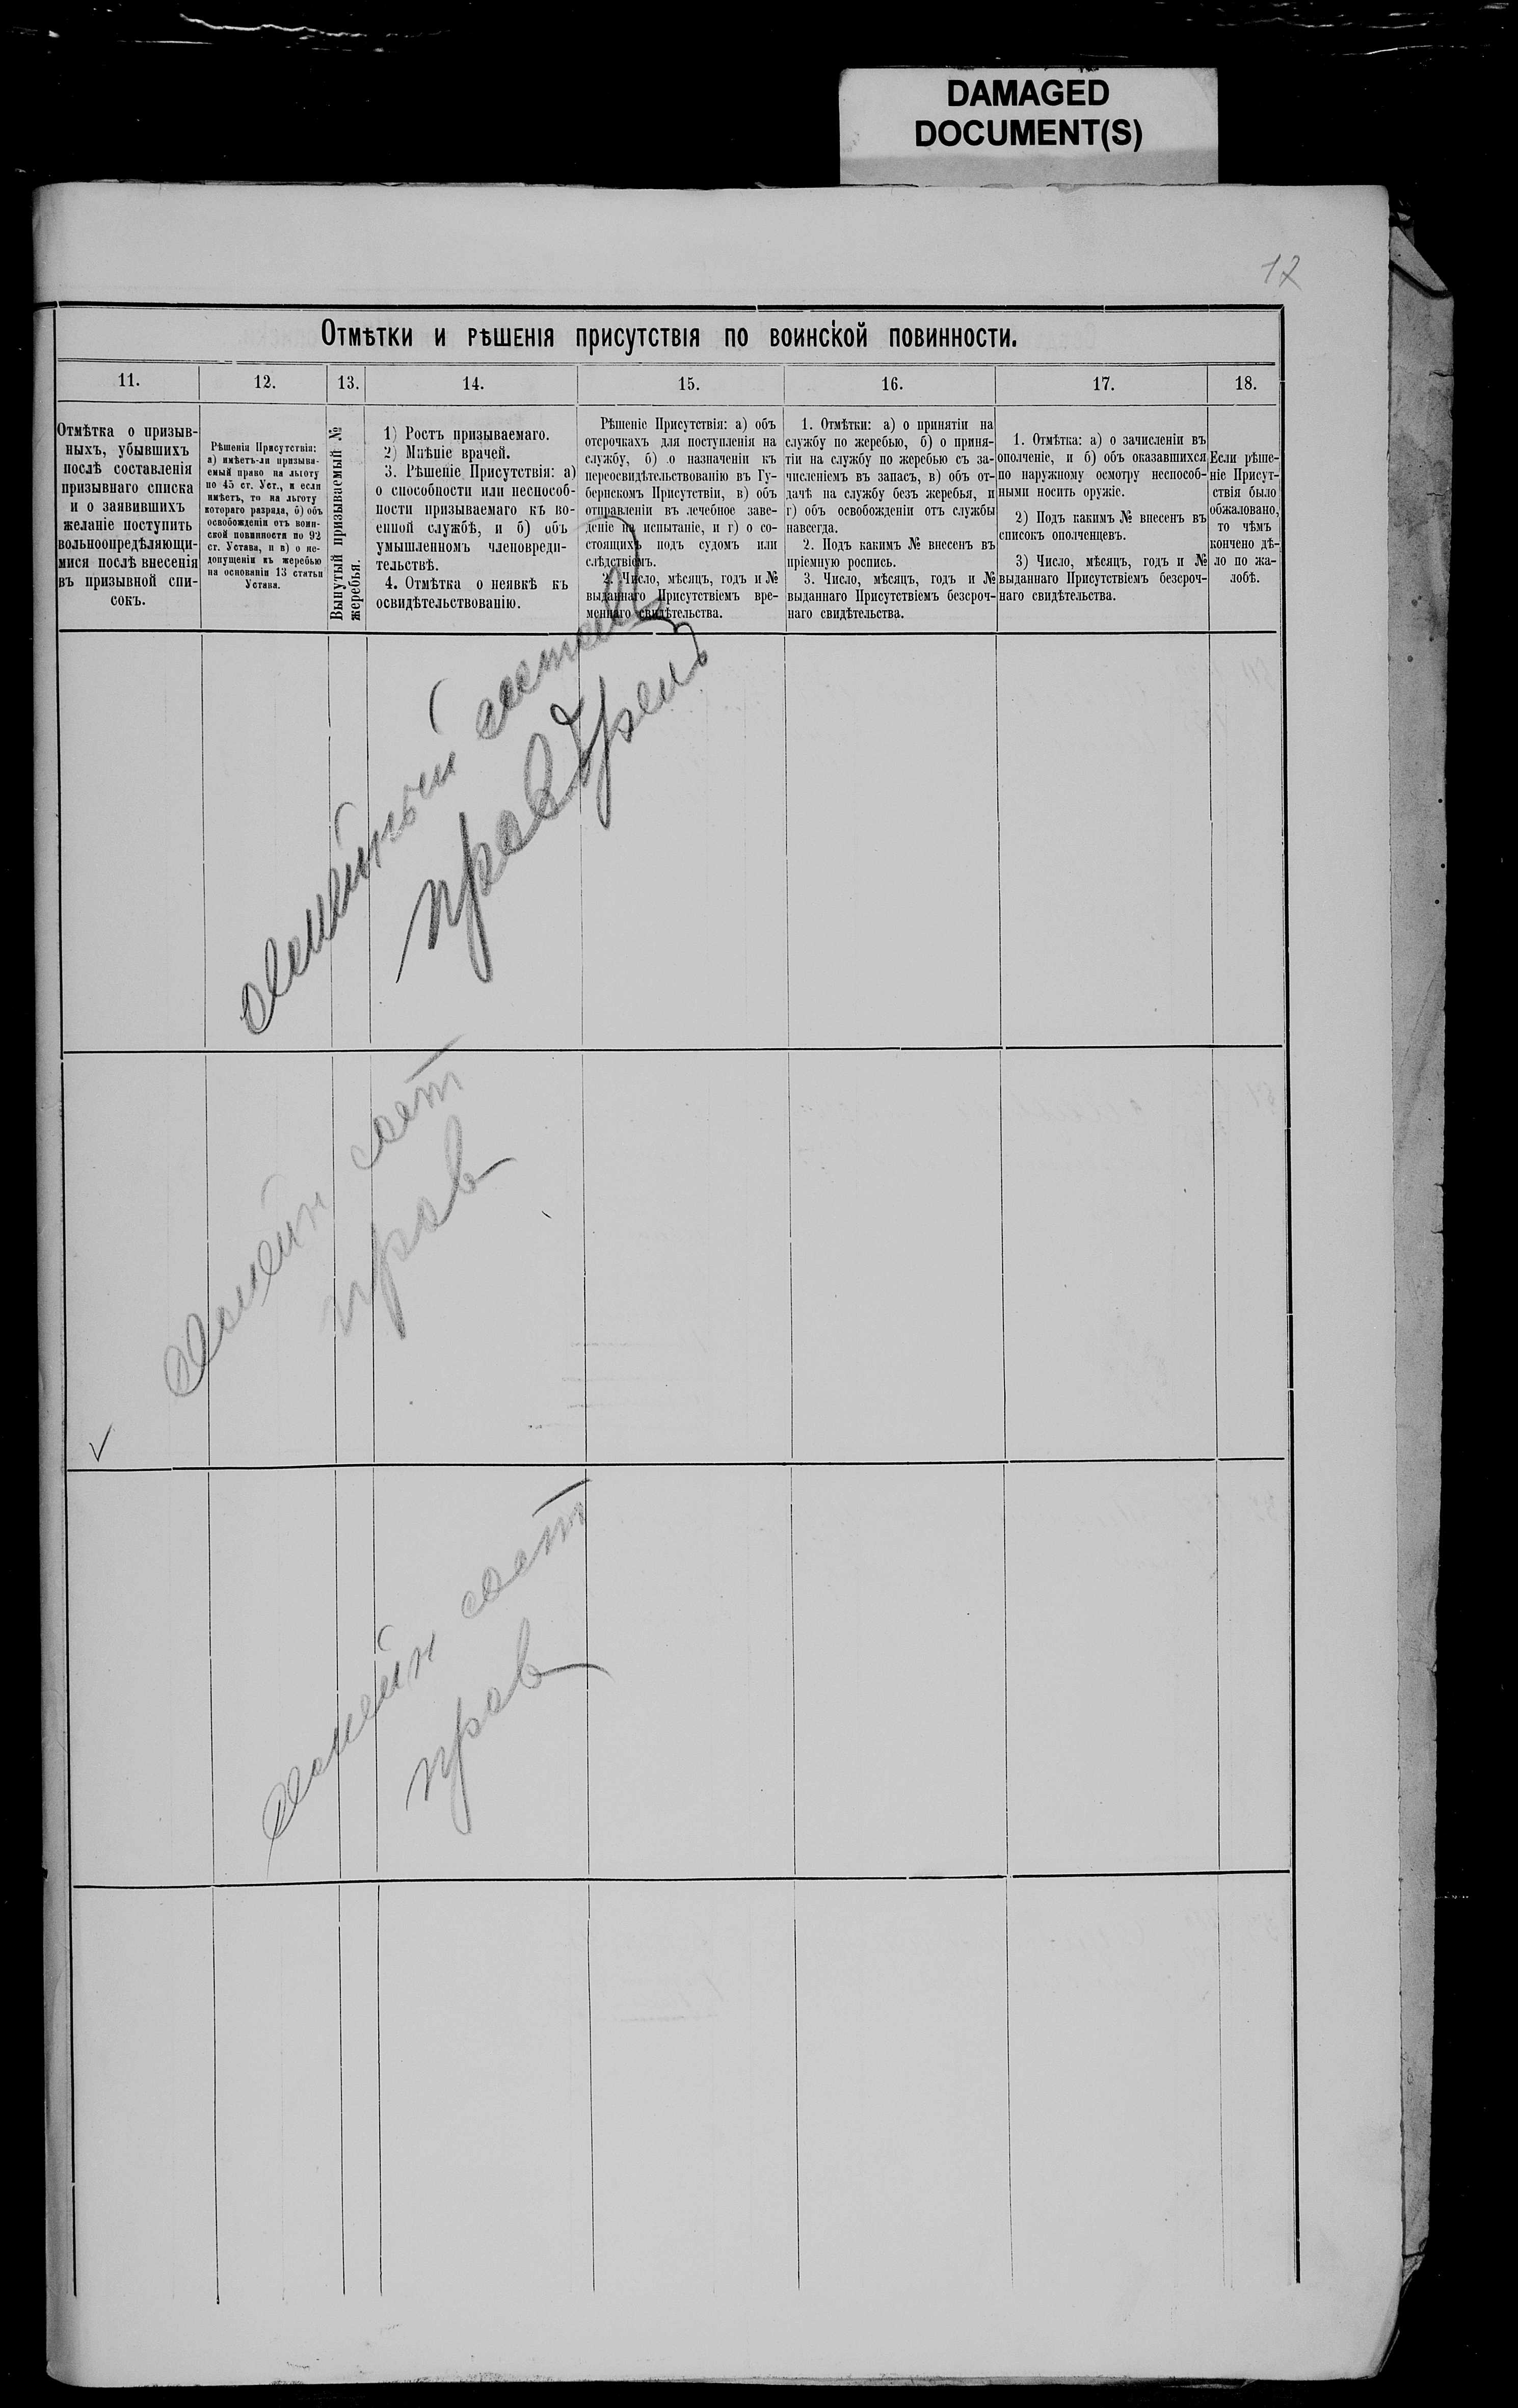 DAMAGED
DOCUMENT(S)
12
Отмѣтки и рѣшенія присутствія по воинской повинности.
11.
12.
13.
14.
15.
16.
17.
18.
Отмѣтка о призыв-
ныхъ, убывшихъ
послѣ составленія
призывнаго списка
и о заявившихъ
желаніе поступить
вольноопредѣляющи-
мися послѣ внесенія
въ призывной спи-
сокъ.
Рѣшенія Присутствія:
а) имѣетъ-ли призыва-
емый право на льготу
по 45 ст. Уст., и если
имѣетъ, то на льготу
котораго разряда, б) объ
освобожденіи отъ воин-
ской повинности по 92
ст. Устава, и в) о не-
допущеніи къ жеребью
на основаніи 13 статьи
Устава.
Вынутый призываемый №
жеребья.
1) Ростъ призываемаго.
2) Мнѣніе врачей.
3. Рѣшеніе Присутствія: а)
о способности или неспособ-
ности призываемаго къ во-
енной службѣ, и б) объ
умышленномъ членовреди-
тельствѣ.
4. Отмѣтка о неявкѣ къ
освидѣтельствованію.
Рѣшеніе Присутствія: а) объ
отсрочкахъ для поступленія на
службу, б) о назначеніи къ
переосвидѣтельствованію въ Гу-
бернскомъ Присутствіи, в) объ
отправленіи въ лечебное заве-
деніе на испытаніе, и г) о со-
стоящихъ подъ судомъ или
слѣдствіемъ.
2. Число, мѣсяцъ, годъ и №
выданнаго Присутствіемъ вре-
меннаго свидѣтельства.
1. Отмѣтки: а) о принятіи на
службу по жеребью, б) о приня-
тіи на службу по жеребью съ за-
численіемъ въ запасъ, в) объ от-
дачѣ на службу безъ жеребья, и
г) объ освобожденіи отъ службы
навсегда.
2. Подъ какимъ № внесенъ въ
пріемную роспись.
3. Число, мѣсяцъ, годъ и №
выданнаго Присутствіемъ безсроч-
наго свидѣтельства.
1. Отмѣтка: а) о зачисленіи въ
ополченіе, и б) объ оказавшихся
по наружному осмотру неспособ-
ными носить оружіе.
2) Подъ какимъ № внесенъ въ
списокъ ополченцевъ.
3) Число, мѣсяцъ, годъ и №
выданнаго Присутствіемъ безсроч-
наго свидѣтельства.
Если рѣше-
ніе Присут-
ствія было
обжаловано,
то чѣмъ
кончено дѣ-
ло по жа-
лобѣ.
семейный состав
провѣрен
семейн сост
пров
семейн сост
пров